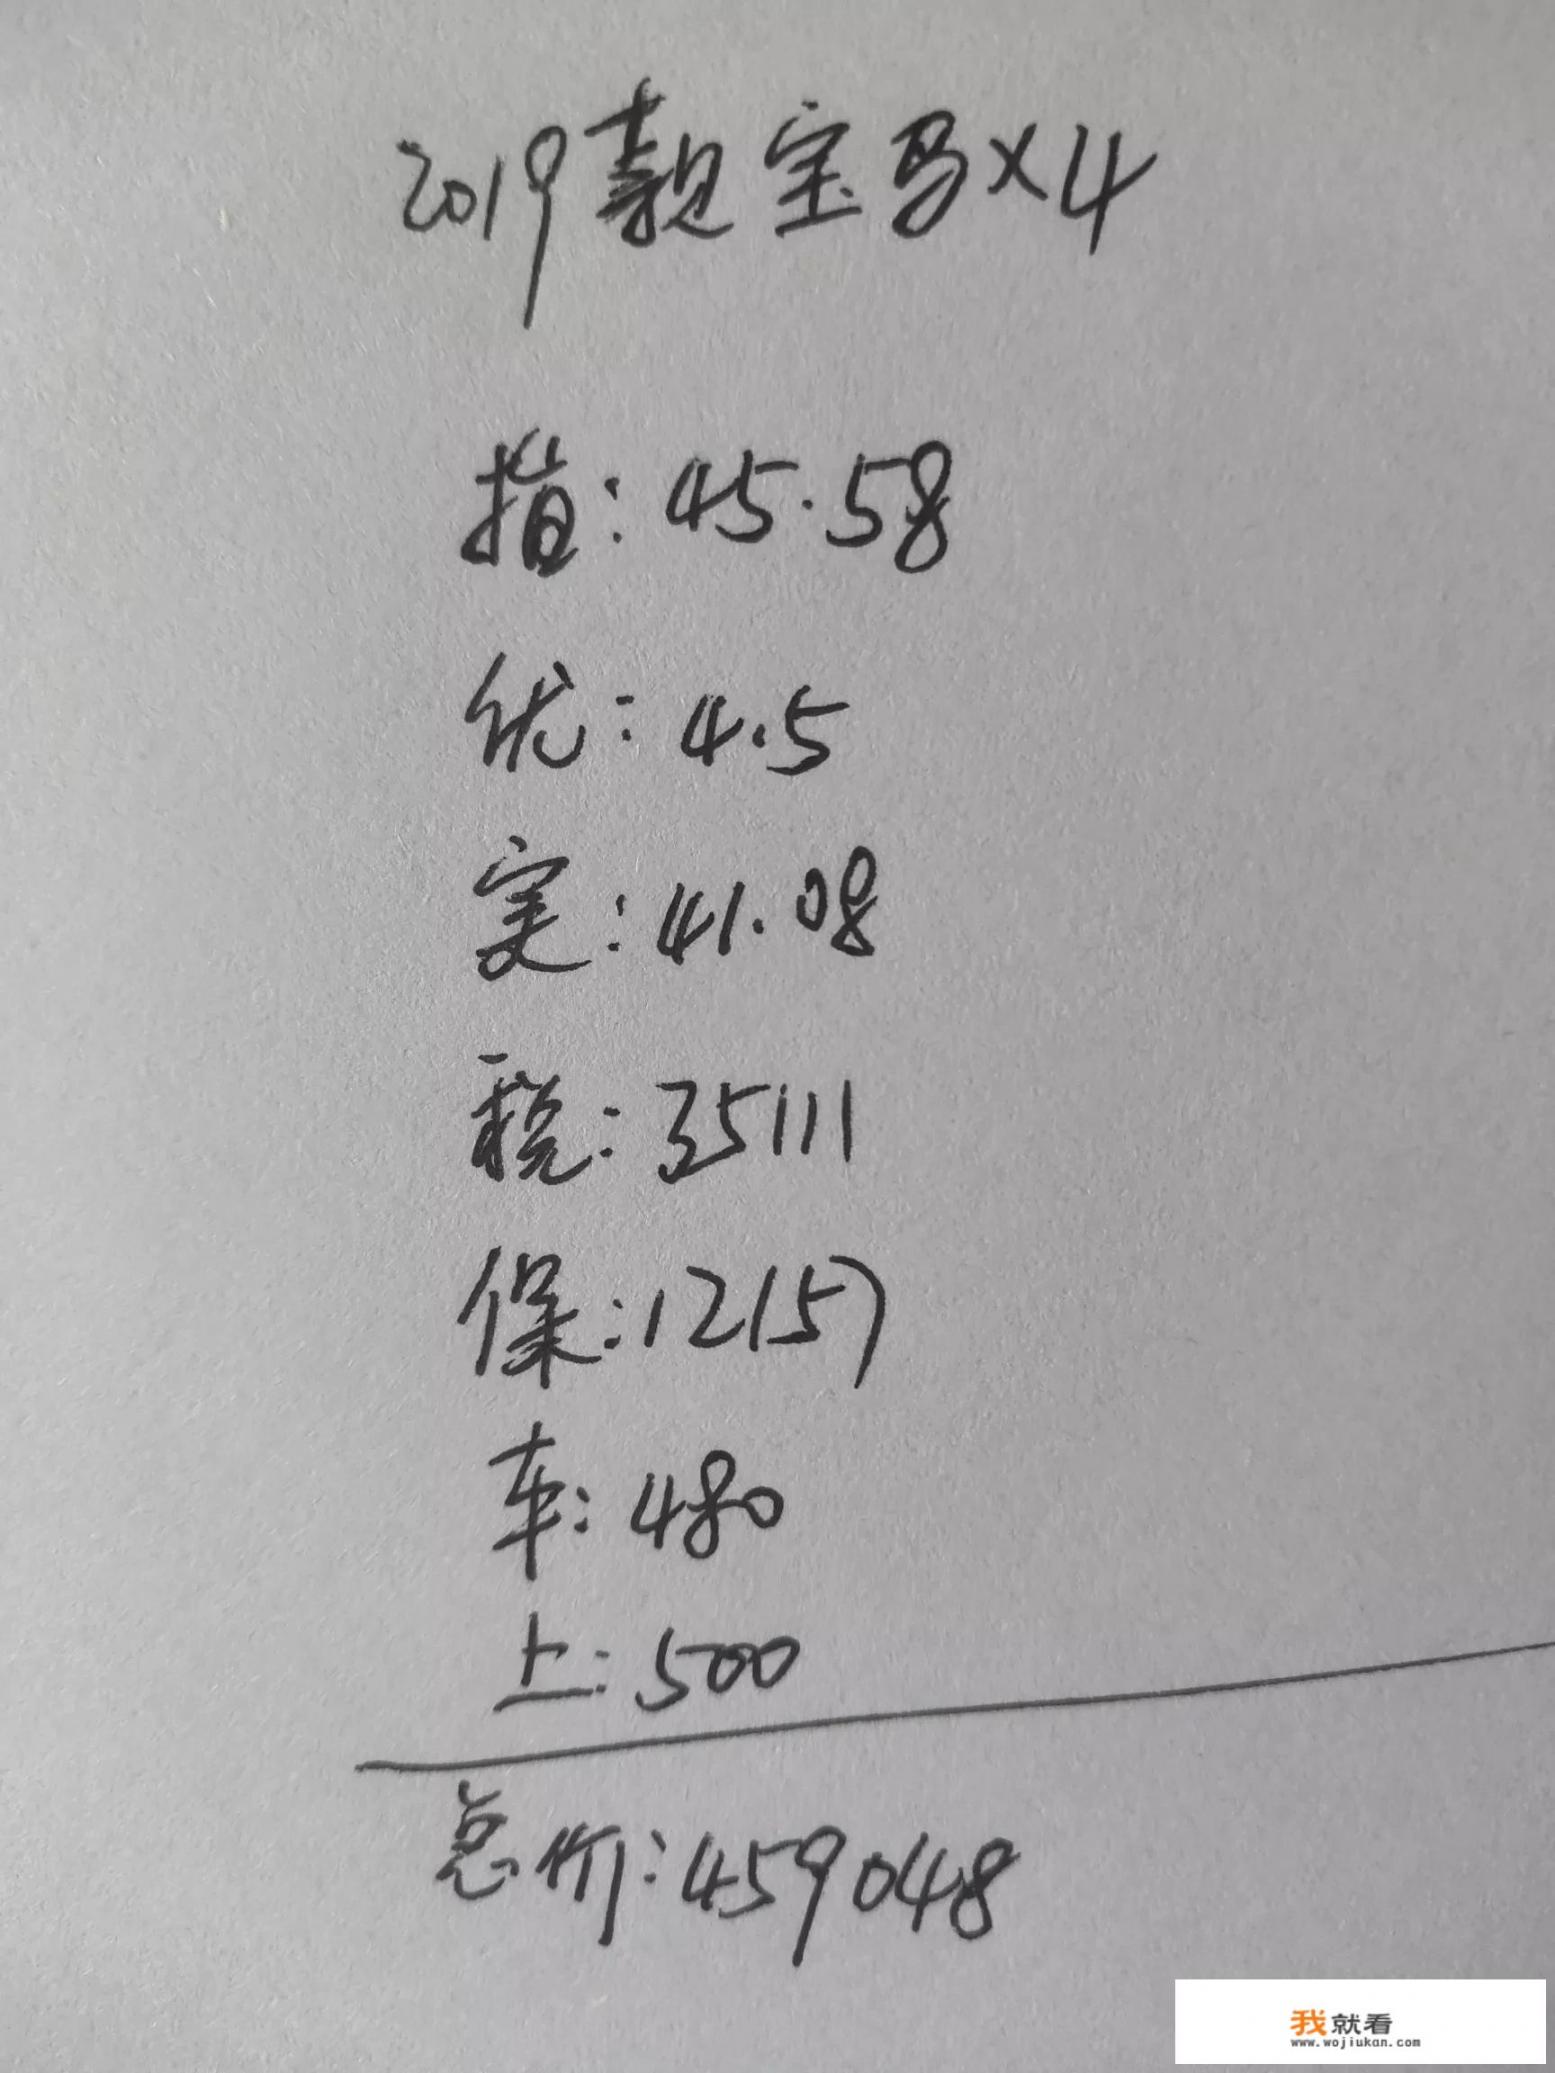 2019款宝马X4
指: 45.58
优: 4.5
实: 41.08
税: 35111
保: 12157
车: 480
上: 500
总价: 459048
我就看
www.wojiukan.com